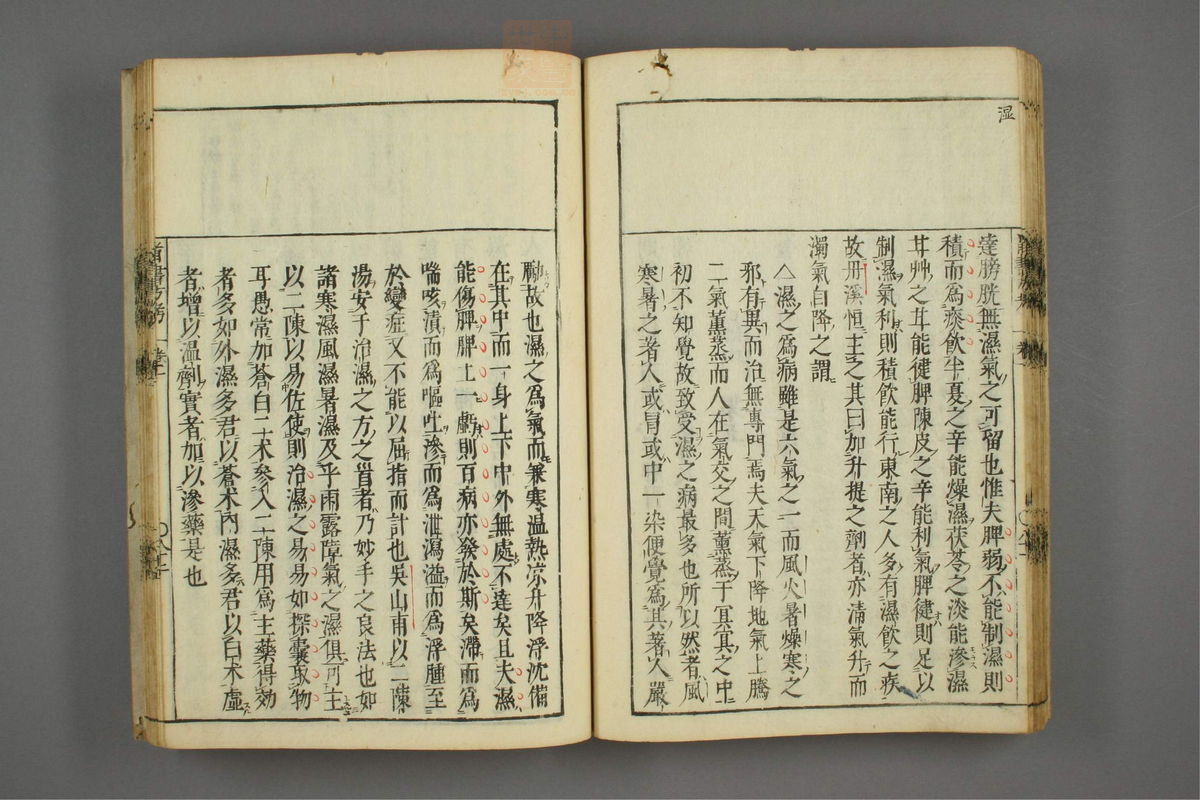 湿
達膀胱無濕氣之可畱也惟夫脾弱不能制濕則
積而爲痰飲半夏之辛能燥濕茯苓之淡能滲濕
甘艸之甘能健脾陳皮之辛能利氣脾健則足以
制濕氣利則積飲能行東南之人多有濕飲之疾
故丹溪恒主之其曰加升提之劑者亦清氣升而
濁氣自降之謂
△濕之爲病雖是六氣之一而風火暑燥寒之
邪有異而治無專門焉夫天氣下降地氣上騰
二氣薰蒸而人在氣交之間薰蒸于冥冥之中
初不知覺故致受濕之病最多也所以然者風
寒暑之著人或冐或中一染便覺爲其著人嚴
勵故也濕之爲氣而兼寒温熱凉升降浮沈備
在其中而一身上下中外無處不達矣且夫濕
能傷脾脾土一虧則百病亦發於斯矣滯而爲
喘咳漬而爲嘔吐滲而爲泄瀉溢而爲浮腫至
於變症又不能以屈指而計也吳山甫以二陳
湯安于治濕之方之首者乃妙手之良法也如
諸寒濕風濕暑濕及乎雨露障氣之濕俱可主
以二陳以易佐使則治濕之易易如探囊取物
耳愚常加蒼白二术參入二陳用爲主藥得効
者多如外濕多君以蒼术內濕多君以白术虛
者增以温劑實者加以滲藥是也